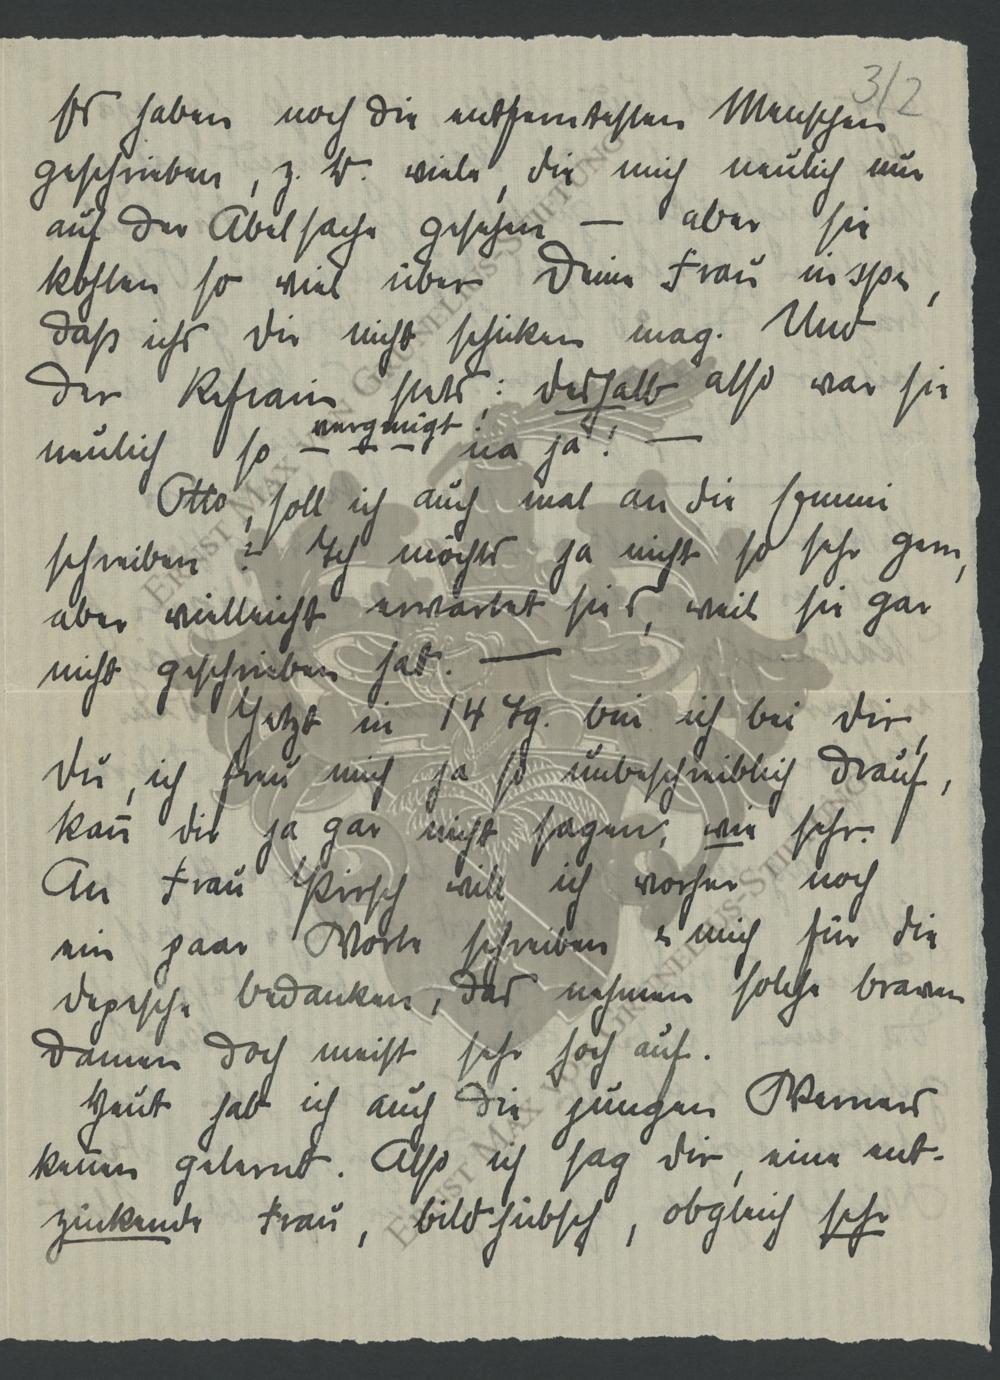 3/2
Es haben noch die entferntesten Menschen
geschrieben, z. B. viele, die mich neulich nur
auf der Abelsache gesehen — aber sie
kohlen so viel über Deine Frau in spe,
daß ichs Dir nicht schicken mag. Und
der Refrain stets: deshalb also war sie
neulich so vergnügt! na ja! —
Otto, soll ich auch mal an die
schreiben? Ich möchts ja nicht so sehr gern,
aber vielleicht erwartet sie's, weil sie gar
nicht geschrieben hat. —
Jetzt in 14 Tg. bin ich bei Dir,
Du, ich freu mich ja so unbeschreiblich drauf,
kan̄ dir ja gar nicht sagen, wie sehr.
An Frau Pirsch will ich vorher noch
ein paar Worte schreiben & mich für die
Depesche bedanken, das nehmen solche braven
Damen doch meist sehr hoch auf.
Heut hab ich auch die jungen Werners
ken̄en gelernt. Also ich sag Dir, eine ent-
zückende Frau, bildhübsch, obgleich sehr
ERNST MAX VON GRUNELIUS-STIFTUNG
ERNST MAX VON GRUNELIUS-STIFTUNG